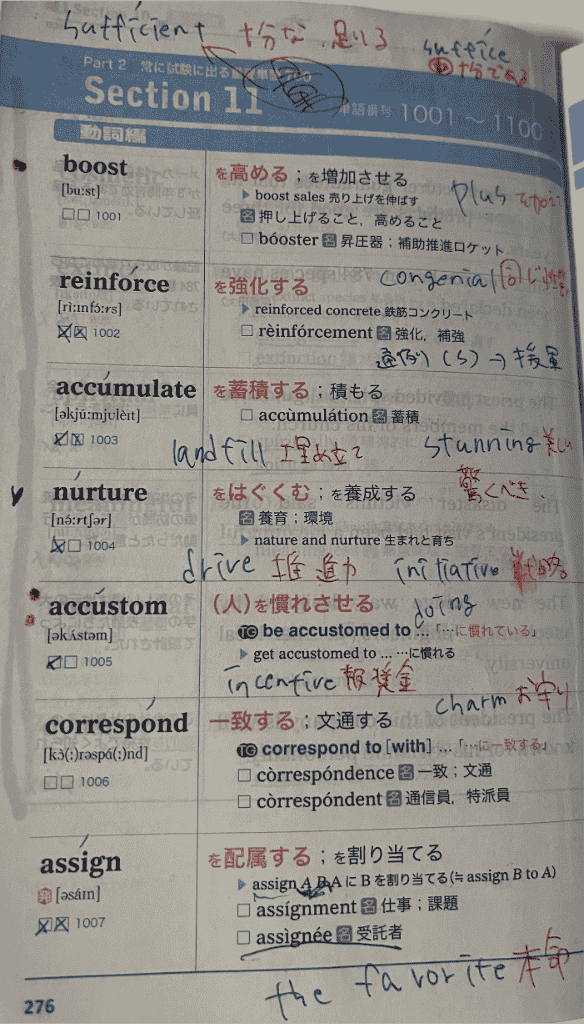 sufficient 十分な 足りる
suffice
十分である
Part 2 常に試験に出る
Section 11
単語番号 1001 ～ 1100
動詞編
boost
[buːst]
□□ 1001
を高める；を増加させる
▶ boost sales 売り上げを伸ばす
名 押し上げること，高めること
□ bóoster 名 昇圧器；補助推進ロケット
plus
reinfórce
[rìːɪnfɔ́ːrs]
1002
を強化する
congenial
▶ reinforced concrete 鉄筋コンクリート
□ rèinfórcement 名 強化，補強
(s) → 援軍
accúmulate
[əkjúːmjulèɪt]
1003
を蓄積する；積もる
□ accùmulátion 名 蓄積
landfill 埋め立て
stunning 美しい
驚くべき
núrture
[nə́ːrtʃər]
□ 1004
をはぐくむ；を養成する
名 養育；環境
▶ nature and nurture 生まれと育ち
drive 推進力
initiative
accústom
[əkʌ́stəm]
□ 1005
(人)を慣れさせる
doing
TO be accustomed to ... 「…に慣れている」
▶ get accustomed to ... …に慣れる
incentive 報奨金
charm お守り
correspónd
[kɔ̀(ː)rəspɑ́(ː)nd]
□□ 1006
一致する；文通する
TO correspond to [with] ... 「…に一致する」
□ còrrespóndence 名 一致；文通
□ còrrespóndent 名 通信員，特派員
assígn
[əsáɪn]
1007
を配属する；を割り当てる
▶ assign A B AにBを割り当てる(≒ assign B to A)
□ assígnment 名 仕事；課題
□ assìgnée 名 受託者
the favorite 本命
276